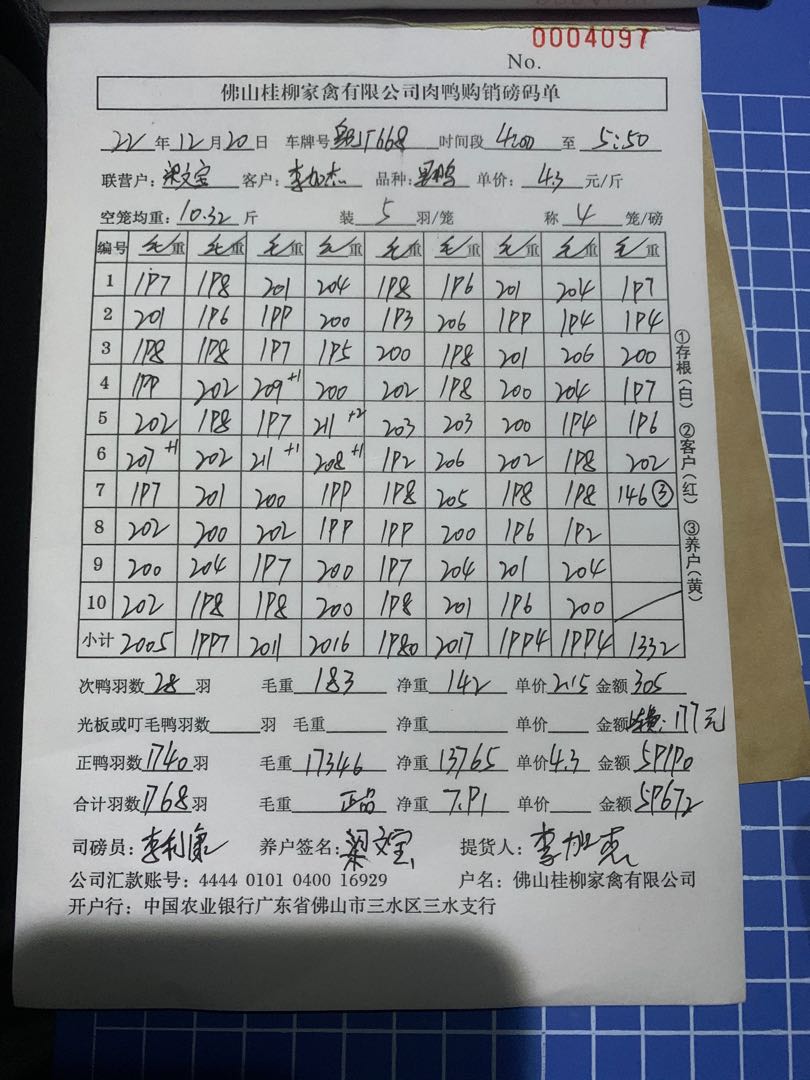 0004097
No.
佛山桂柳家禽有限公司肉鸭购销磅码单
22年12月20日 车牌号 668 时间段 4:00 至 5:50
联营户: 梁文宝 客户: 李加杰 品种: 单价: 4.3 元/斤
空笼均重: 10.32 斤 装 5 羽/笼 称 4 笼/磅
编号 毛重 毛重 毛重 毛重 毛重 毛重 毛重 毛重 毛重
1 197 198 201 204 198 196 201 204 197
2 201 196 199 200 193 206 199 194 194
3 198 198 197 195 200 198 201 206 200
4 199 202 209+1 200 202 198 200 204 197
5 202 198 197 211+2 203 203 200 194 196
6 207+1 202 211+1 208+1 192 206 202 198 202
7 197 201 200 199 198 205 198 198 146③
8 202 200 202 199 199 200 196 192
9 200 204 197 200 197 204 201 204
10 202 198 198 200 198 201 196 200
小计 2005 1997 2011 2016 1980 2017 1994 1994 1332
次鸭羽数 28 羽 毛重 183 净重 142 单价 2.15 金额 305
光板或叮毛鸭羽数 羽 毛重 净重 单价 金额 : 177元
正鸭羽数 1740 羽 毛重 17346 净重 13765 单价 4.3 金额 59190
合计羽数 1768 羽 毛重 正品 净重 7.91 单价 金额 59672
司磅员: 李利康 养户签名: 梁文宝 提货人: 李加杰
公司汇款账号: 4444 0101 0400 16929 户名: 佛山桂柳家禽有限公司
开户行: 中国农业银行广东省佛山市三水区三水支行
①存根(白) ②客户(红) ③养户(黄)